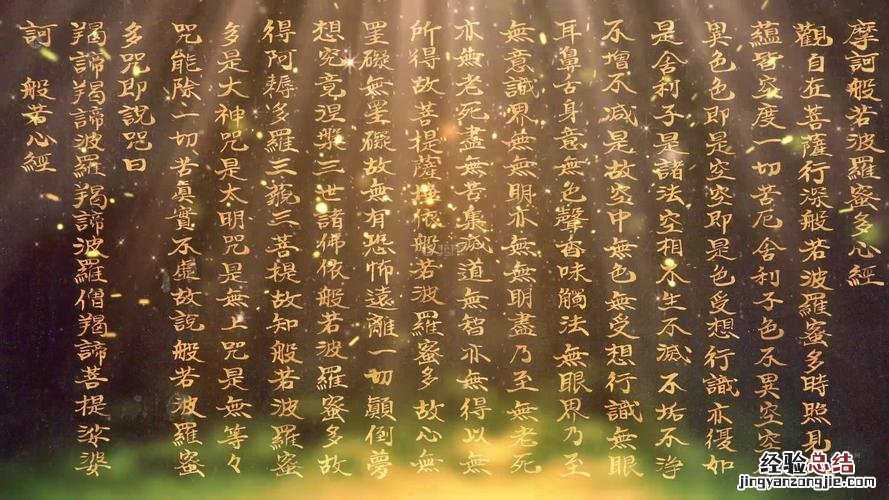 摩訶般若波羅蜜多心經
觀自在菩薩行深般若波羅蜜多時照見
蘊皆空度一切苦厄舍利子色不異空空
異色色即是空空即是色受想行識亦復如
是舍利子是諸法空相不生不滅不垢不淨
不增不减是故空中無色無受想行識無眼
耳鼻舌身意無色聲香味觸法無眼界乃至
無意識界無無明亦無無明盡乃至無老死
亦無老死盡無苦集滅道無智亦無得以無
所得故菩提薩埵依般若波羅蜜多故心無
罣礙無罣礙故無有恐怖遠離一切顛倒夢
想究竟涅槃三世諸佛依般若波羅蜜多故
得阿耨多羅三藐三菩提故知般若波羅蜜
多是大神咒是太明咒是無上咒是無等々
咒能除一切苦真實不虛故說般若波羅蜜
多咒即說咒曰
羯諦羯諦波羅羯諦波羅僧羯諦菩提娑婆
訶 般若心經
经验总结
jingyanzongjie.com